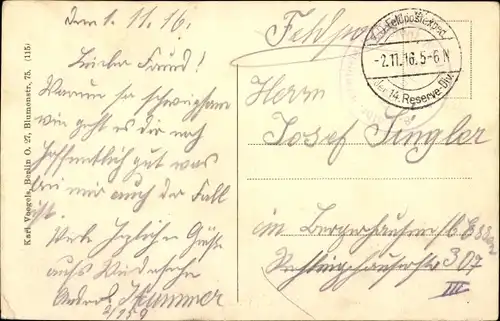 den 1. 11. 16.
Lieber Freund!
Warum so schweigsam
wie geht es dir noch
hoffentlich gut was
bei mir auch der Fall
ist.
Viele herzliche Grüße
aufs Wiedersehn
Hummer
Karl Voegels, Berlin O. 27, Blumenstr. 75. (115)
Feldpost
K.D. Feldpostexped.
-2.11.16. 5-6 N
der 14. Reserve-Div.
Herrn
Josef Singler
in Bergerhausen b. Essen
307
III